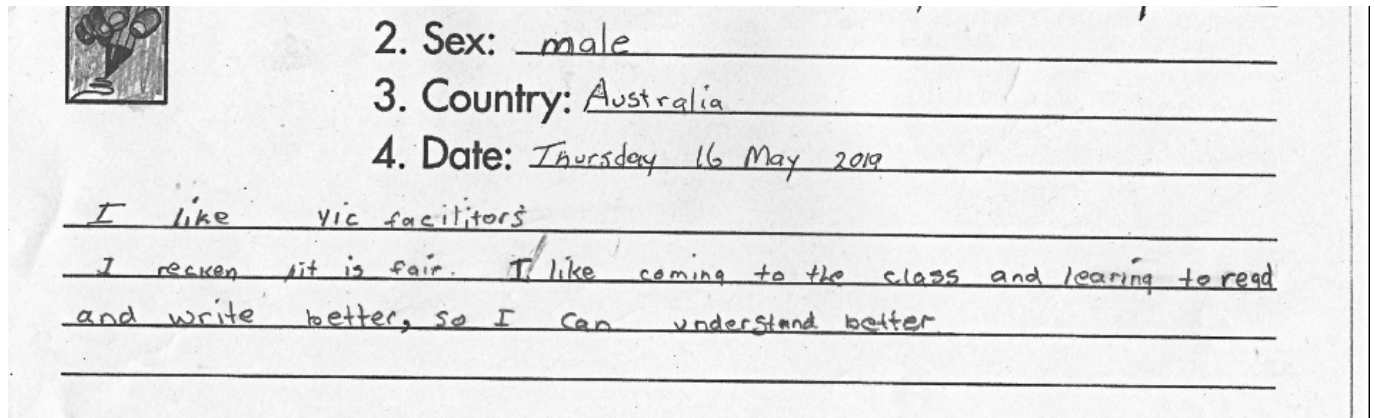 2. Sex: male
3. Country: Australia
4. Date: Thursday 16 May 2019
I like yic facilitors
I recken it is fair. I like coming to the class and learing to read
and write better, so I can understand better